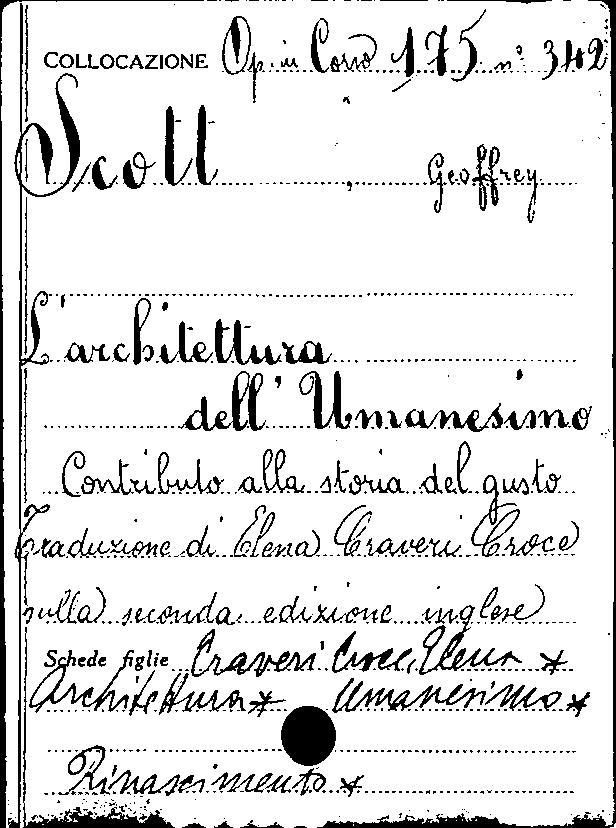 COLLOCAZIONE Op. in Corso 175 n° 342
Scott, Geoffrey
L'architettura
dell'Umanesimo
Contributo alla storia del gusto
Traduzione di Elena Craveri Croce
sulla seconda edizione inglese
Schede figlie Craveri Croce, Elena *
Architettura * Umanesimo *
Rinascimento *